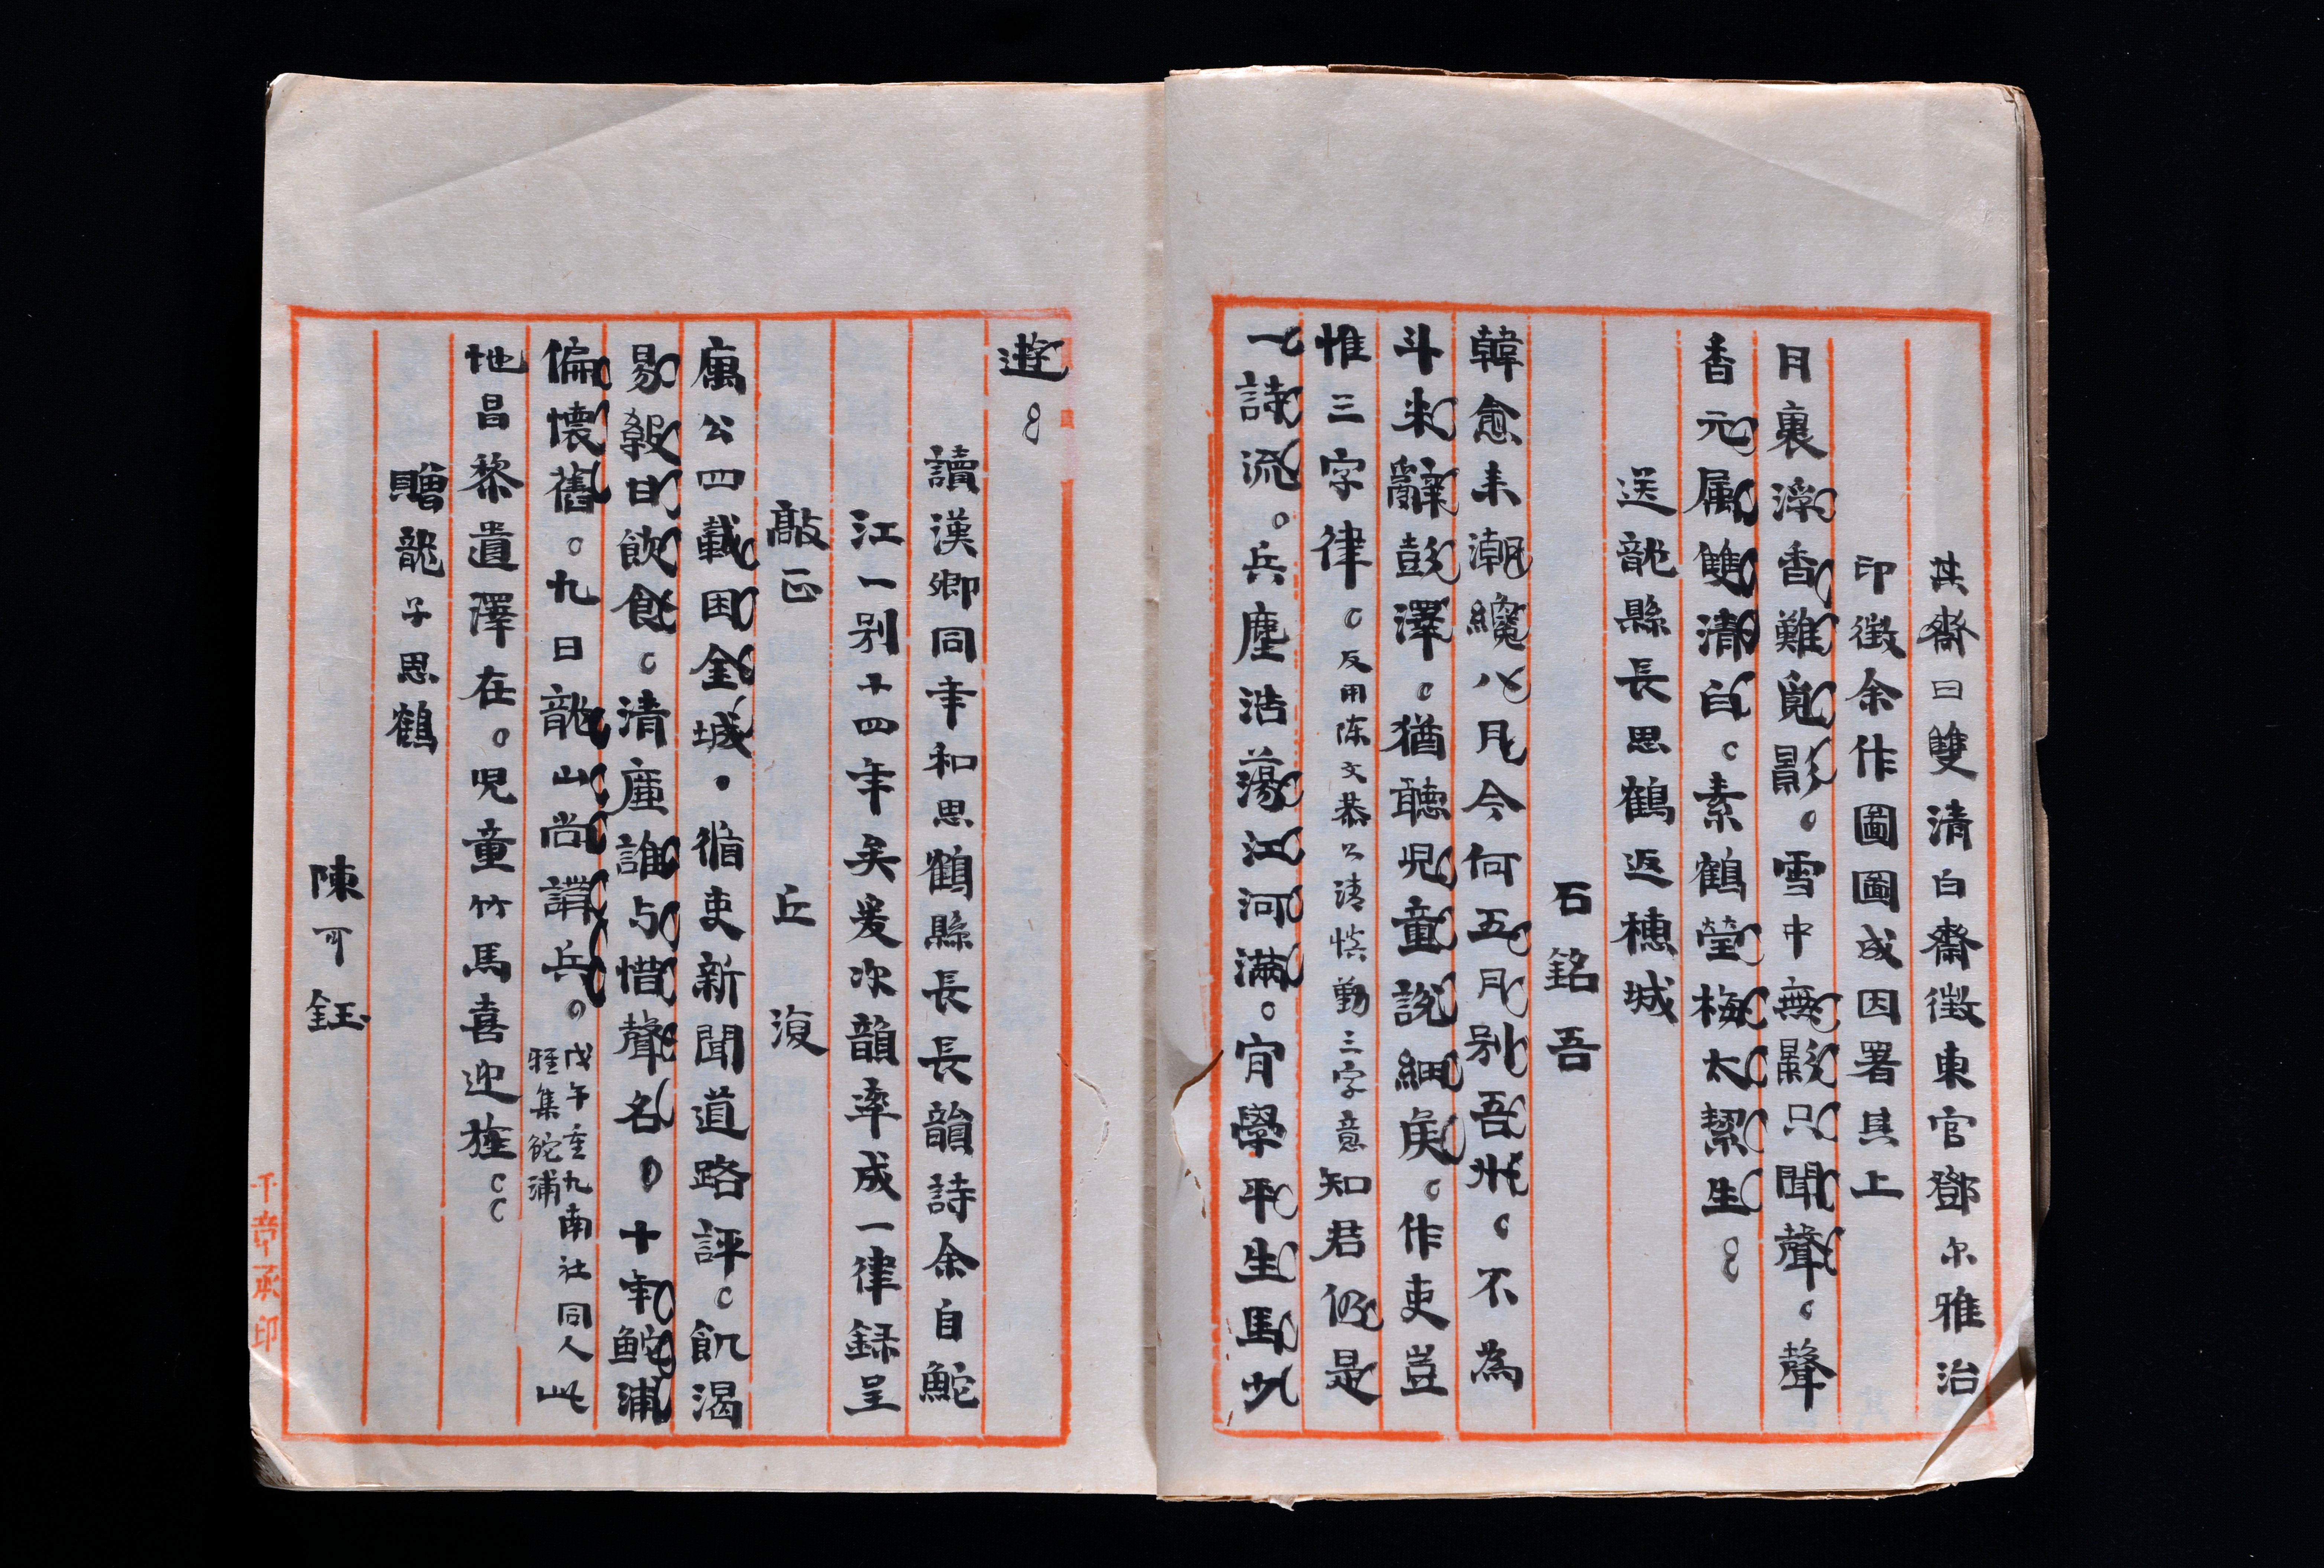 其齋曰雙清白齋徵東官鄧尔雅治
印徵余作圖圖成因署其上
月裏浮香難覓影。雪中無影只聞聲。聲
香元属雙清白。素鶴瑩梅太絜生
送龍縣長思鶴返穗城
石銘吾
韓愈来潮纔八月今何五月别吾州。不為
斗米辭彭澤。猶聽児童説細矦。作吏豈
惟三字律。反用陈文恭公清慎勤三字意知君仍是
一詩流。兵塵浩蕩江河滿。宵學平生馬少
遊
讀漢卿同年和思鶴縣長長韻詩余自鮀
江一别十四年矣爰次韻率成一律録呈
敲正 丘復
廣公四載困金城。循吏新聞道路評。飢渴
易殺甘飲食。清廉誰与惜聲名。十年鮀浦
偏懷舊。九日龍山尚講兵。戊午重九南社同人雅集鮀浦此
地昌黎遺澤在。児童竹馬喜迎旌。
贈龍子思鶴
陳可鈺
千章承印